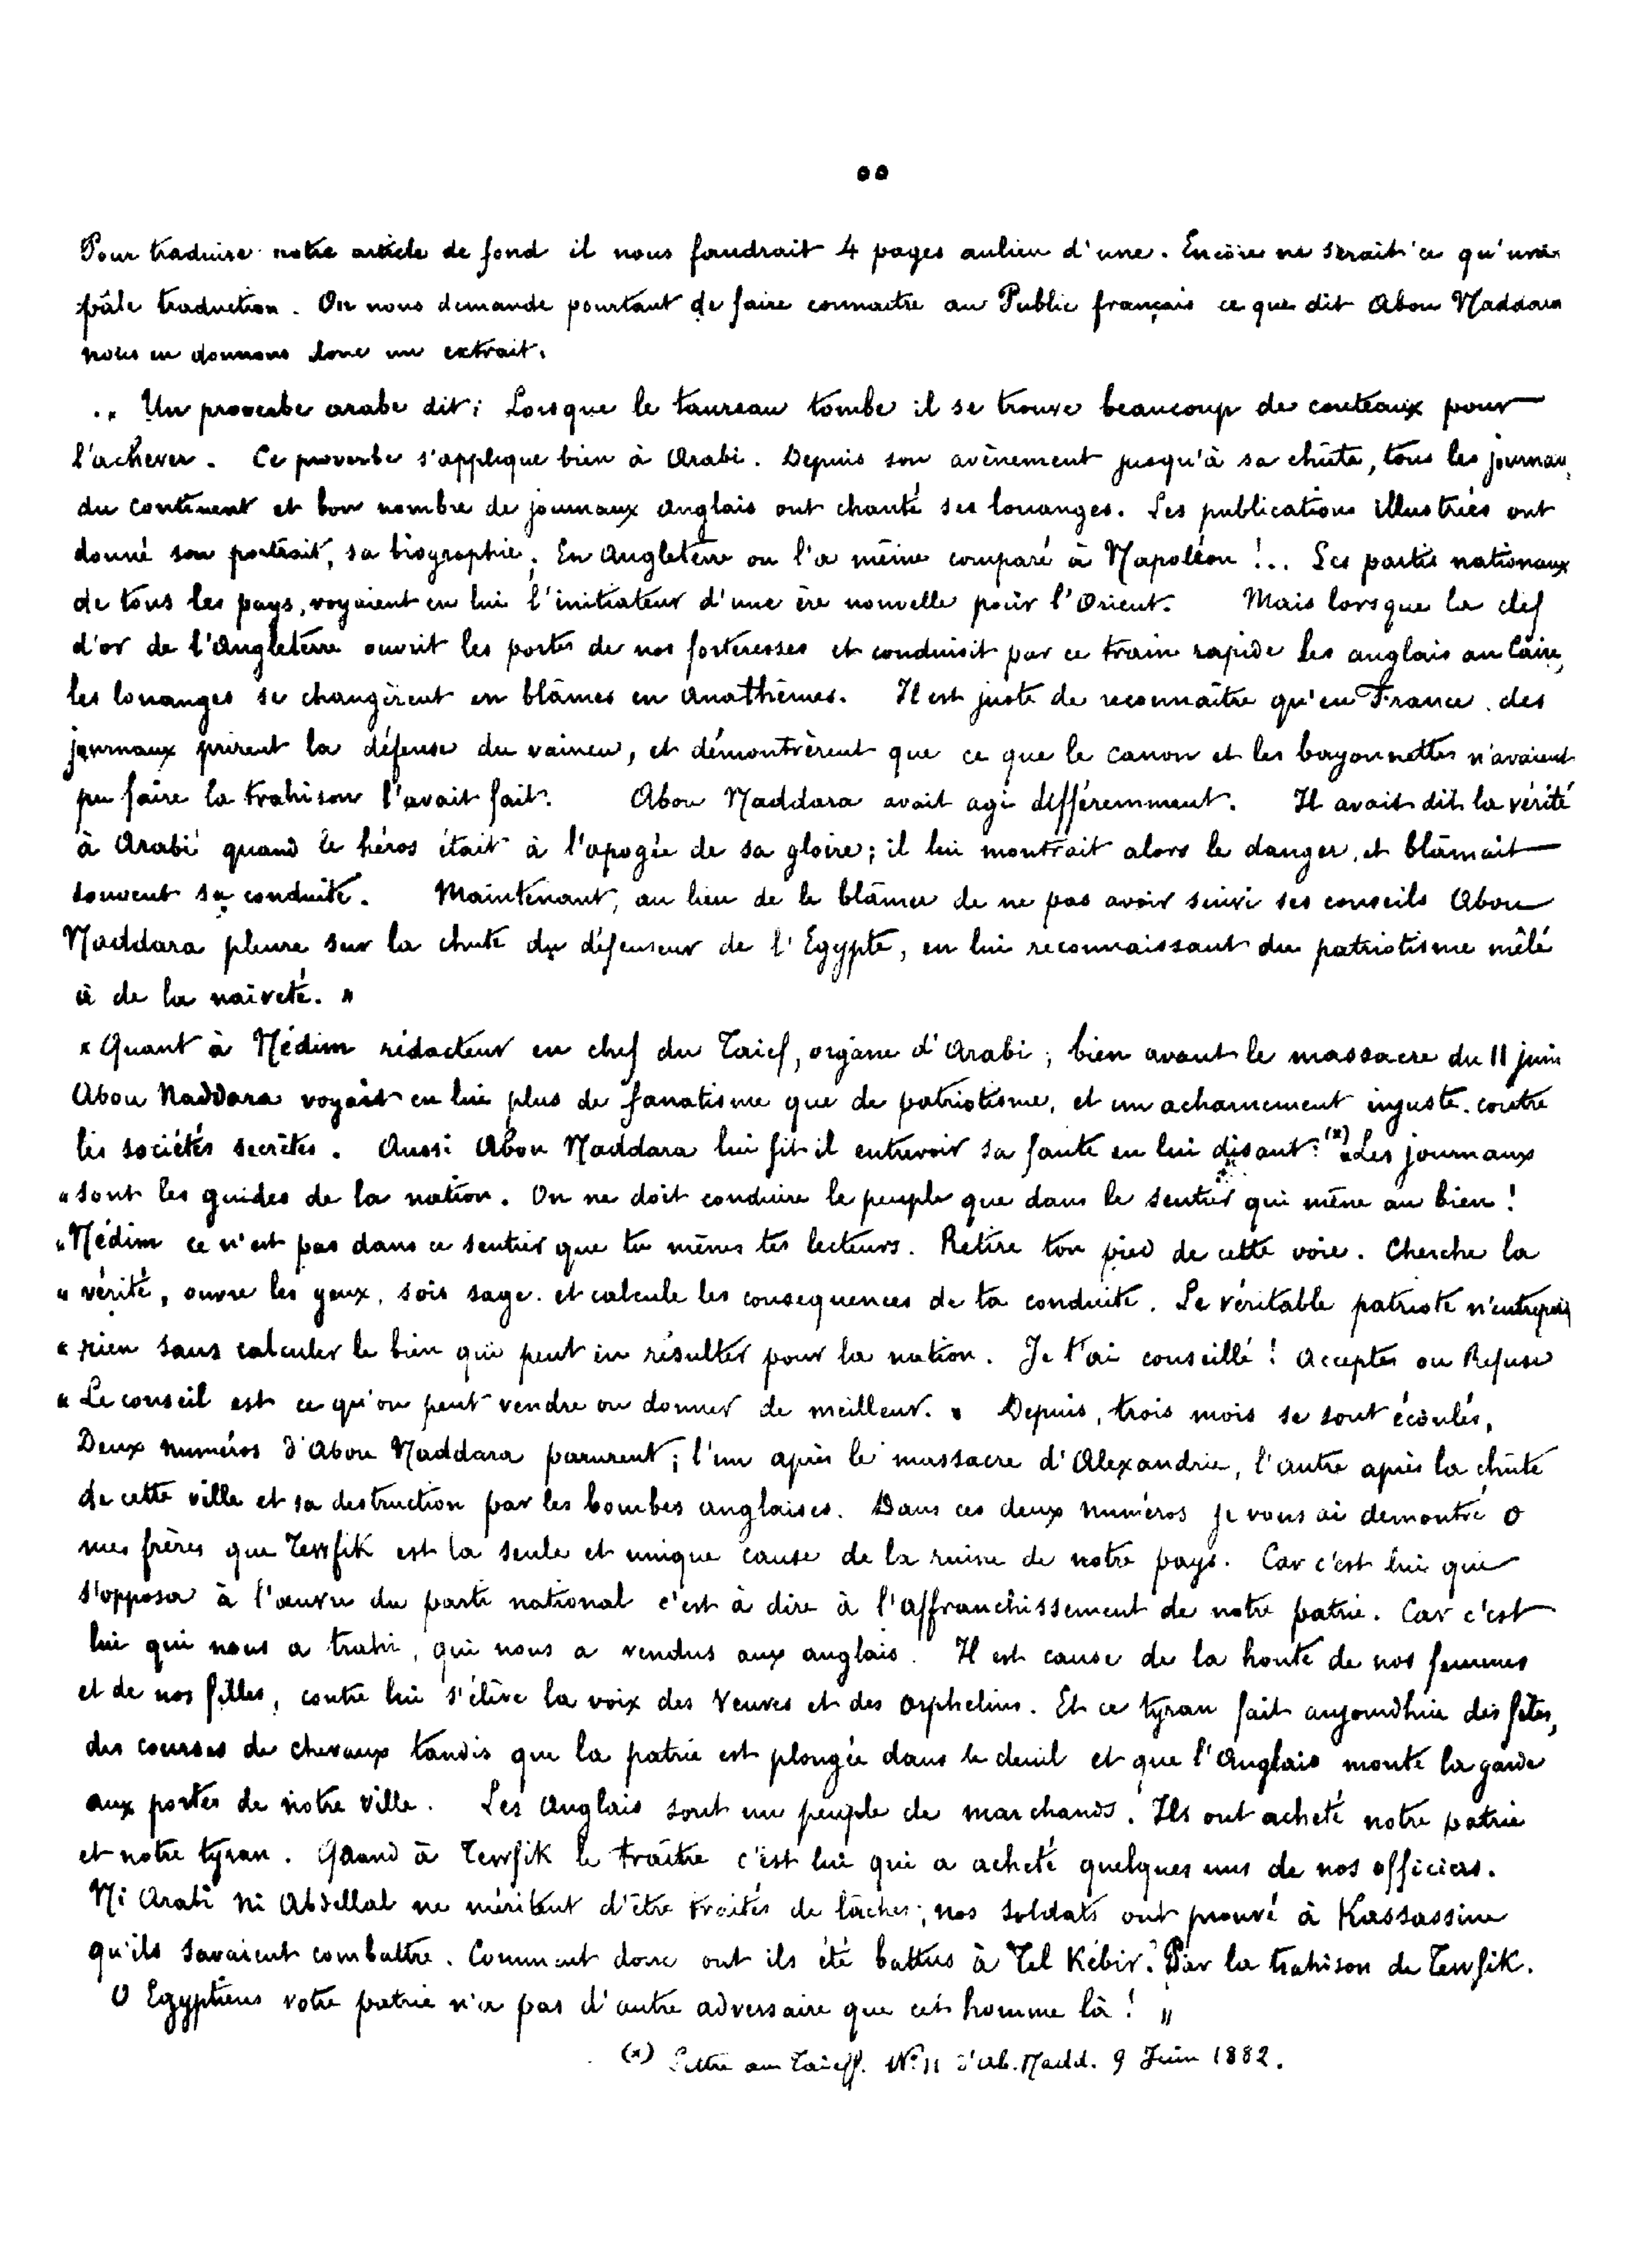 Pour traduire notre article de fond il nous faudrait 4 pages aulieu d'une. Encore ne serait'ce qu'une
pâle traduction. On nous demande pourtant de faire connaitre au Public français ce que dit Abou Naddara
nous en donnons donc un extrait.
« Un proverbe arabe dit: Lorsque le taureau tombe il se trouve beaucoup de couteaux pour
l'achever. Ce proverbe s'applique bien à Arabi. Depuis son avènement jusqu'à sa chûte, tous les journaux
du continent et bon nombre de journaux anglais ont chanté ses louanges. Les publications illustrées ont
donné son portrait, sa biographie. En Angleterre on l'a même comparé à Napoléon !... Les partis nationaux
de tous les pays, voyaient en lui l'initiateur d'une ère nouvelle pour l'Orient. Mais lorsque la clef
d'or de l'Angleterre ouvrit les portes de nos forteresses et conduisit par ce train rapide les anglais au Caire,
les louanges se changèrent en blâmes en anathèmes. Il est juste de reconnaître qu'en France des
journaux prirent la défense du vaincu, et démontrèrent que ce que le canon et les bayonnettes n'avaient
pu faire la trahison l'avait fait. Abou Naddara avait agi différemment. Il avait dit la vérité
à Arabi quand le héros était à l'apogée de sa gloire; il lui montrait alors le danger, et blâmait
souvent sa conduite. Maintenant, au lieu de le blâmer de ne pas avoir suivi ses conseils Abou
Naddara pleure sur la chute du défenseur de l'Egypte, en lui reconnaissant du patriotisme mêlé
à de la naïveté. »
« Quant à Nédim rédacteur en chef du Taief, organe d'Arabi; bien avant le massacre du 11 juin
Abou Naddara voyait en lui plus de fanatisme que de patriotisme, et un acharnement injuste contre
les sociétés secrètes. Aussi Abou Naddara lui fit il entrevoir sa faute en lui disant: (x) «Les journaux
« sont les guides de la nation. On ne doit conduire le peuple que dans le sentier qui mène au bien !
« Nédim ce n'est pas dans ce sentier que tu mènes tes lecteurs. Retire ton pied de cette voie. Cherche la
« vérité, ouvre les yeux, sois sage et calcule les consequences de ta conduite. Le véritable patriote n'entreprend
« rien sans calculer le bien qui peut en résulter pour la nation. Je t'ai conseillé! Acceptes ou Refuse
« Le conseil est ce qu'on peut vendre ou donner de meilleur. » Depuis, trois mois se sont écoulés,
Deux numéros d'Abou Naddara parurent; l'un après le massacre d'Alexandrie, l'autre après la chûte
de cette ville et sa destruction par les bombes anglaises. Dans ces deux numéros je vous ai demontré O
mes frères que Tewfik est la seule et unique cause de la ruine de notre pays. Car c'est lui qui
s'opposa à l'œuvre du parti national c'est à dire à l'affranchissement de notre patrie. Car c'est
lui qui nous a trahi, qui nous a vendus aux anglais. Il est cause de la honte de nos femmes
et de nos filles, contre lui s'élève la voix des Veuves et des Orphelins. Et ce tyran fait aujourdhui des fêtes,
des courses de chevaux tandis que la patrie est plongée dans le deuil et que l'Anglais monte la garde
aux portes de notre ville. Les Anglais sont un peuple de marchands. Ils ont acheté notre patrie
et notre tyran. Quand à Tewfik le traître c'est lui qui a acheté quelques uns de nos officiers.
Ni Arabi ni Abdellal ne méritent d'être traités de lâches; nos soldats ont prouvé à Kassassine
qu'ils savaient combattre. Comment donc ont ils été battus à Tel Kébir? Par la trahison de Tewfik.
O Egyptiens votre patrie n'a pas d'autre adversaire que cet homme là! »
(x) Lettre au Taieff. Nº 11 d'Ab. Nadd. 9 Juin 1882.